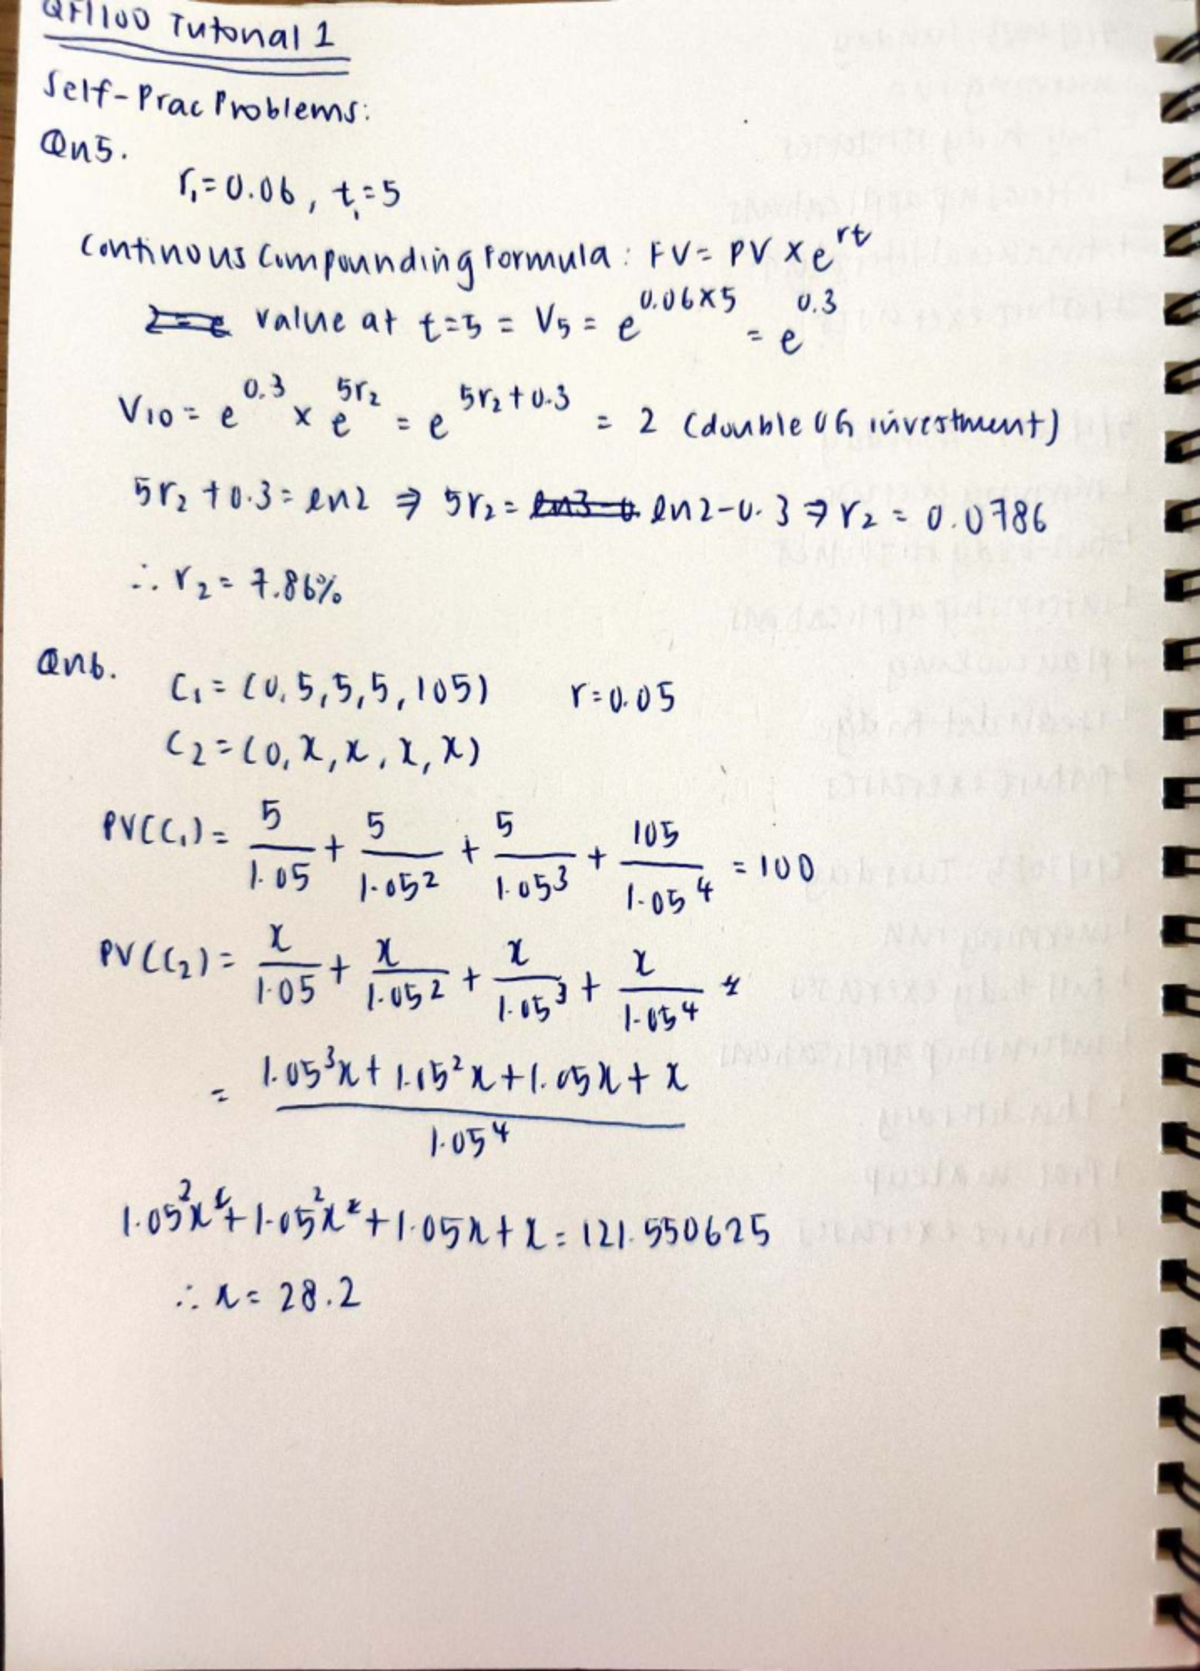 QF1100 Tutorial 1
Self-Prac Problems:
Qn5.
r₁=0.06, t₁=5
Continous Compounding Formula: FV= PV × e^rt
value at t=5 = V5 = e^0.06×5 = e^0.3
V10 = e^0.3 × e^5r₂ = e^5r₂+0.3 = 2 (double OG investment)
5r₂ + 0.3 = ln2 ⇒ 5r₂ = ln2-0.3 ⇒ r₂ = 0.0786
∴ r₂ = 7.86%
Qn6.
C₁ = (0, 5, 5, 5, 105) r=0.05
C₂ = (0, x, x, x, x)
PV(C₁) = 5/1.05 + 5/1.05² + 5/1.05³ + 105/1.05⁴ = 100
PV(C₂) = x/1.05 + x/1.05² + x/1.05³ + x/1.05⁴
= (1.05³x + 1.05²x + 1.05x + x)/1.05⁴
1.05³x + 1.05²x + 1.05x + x = 121.550625
∴ x = 28.2